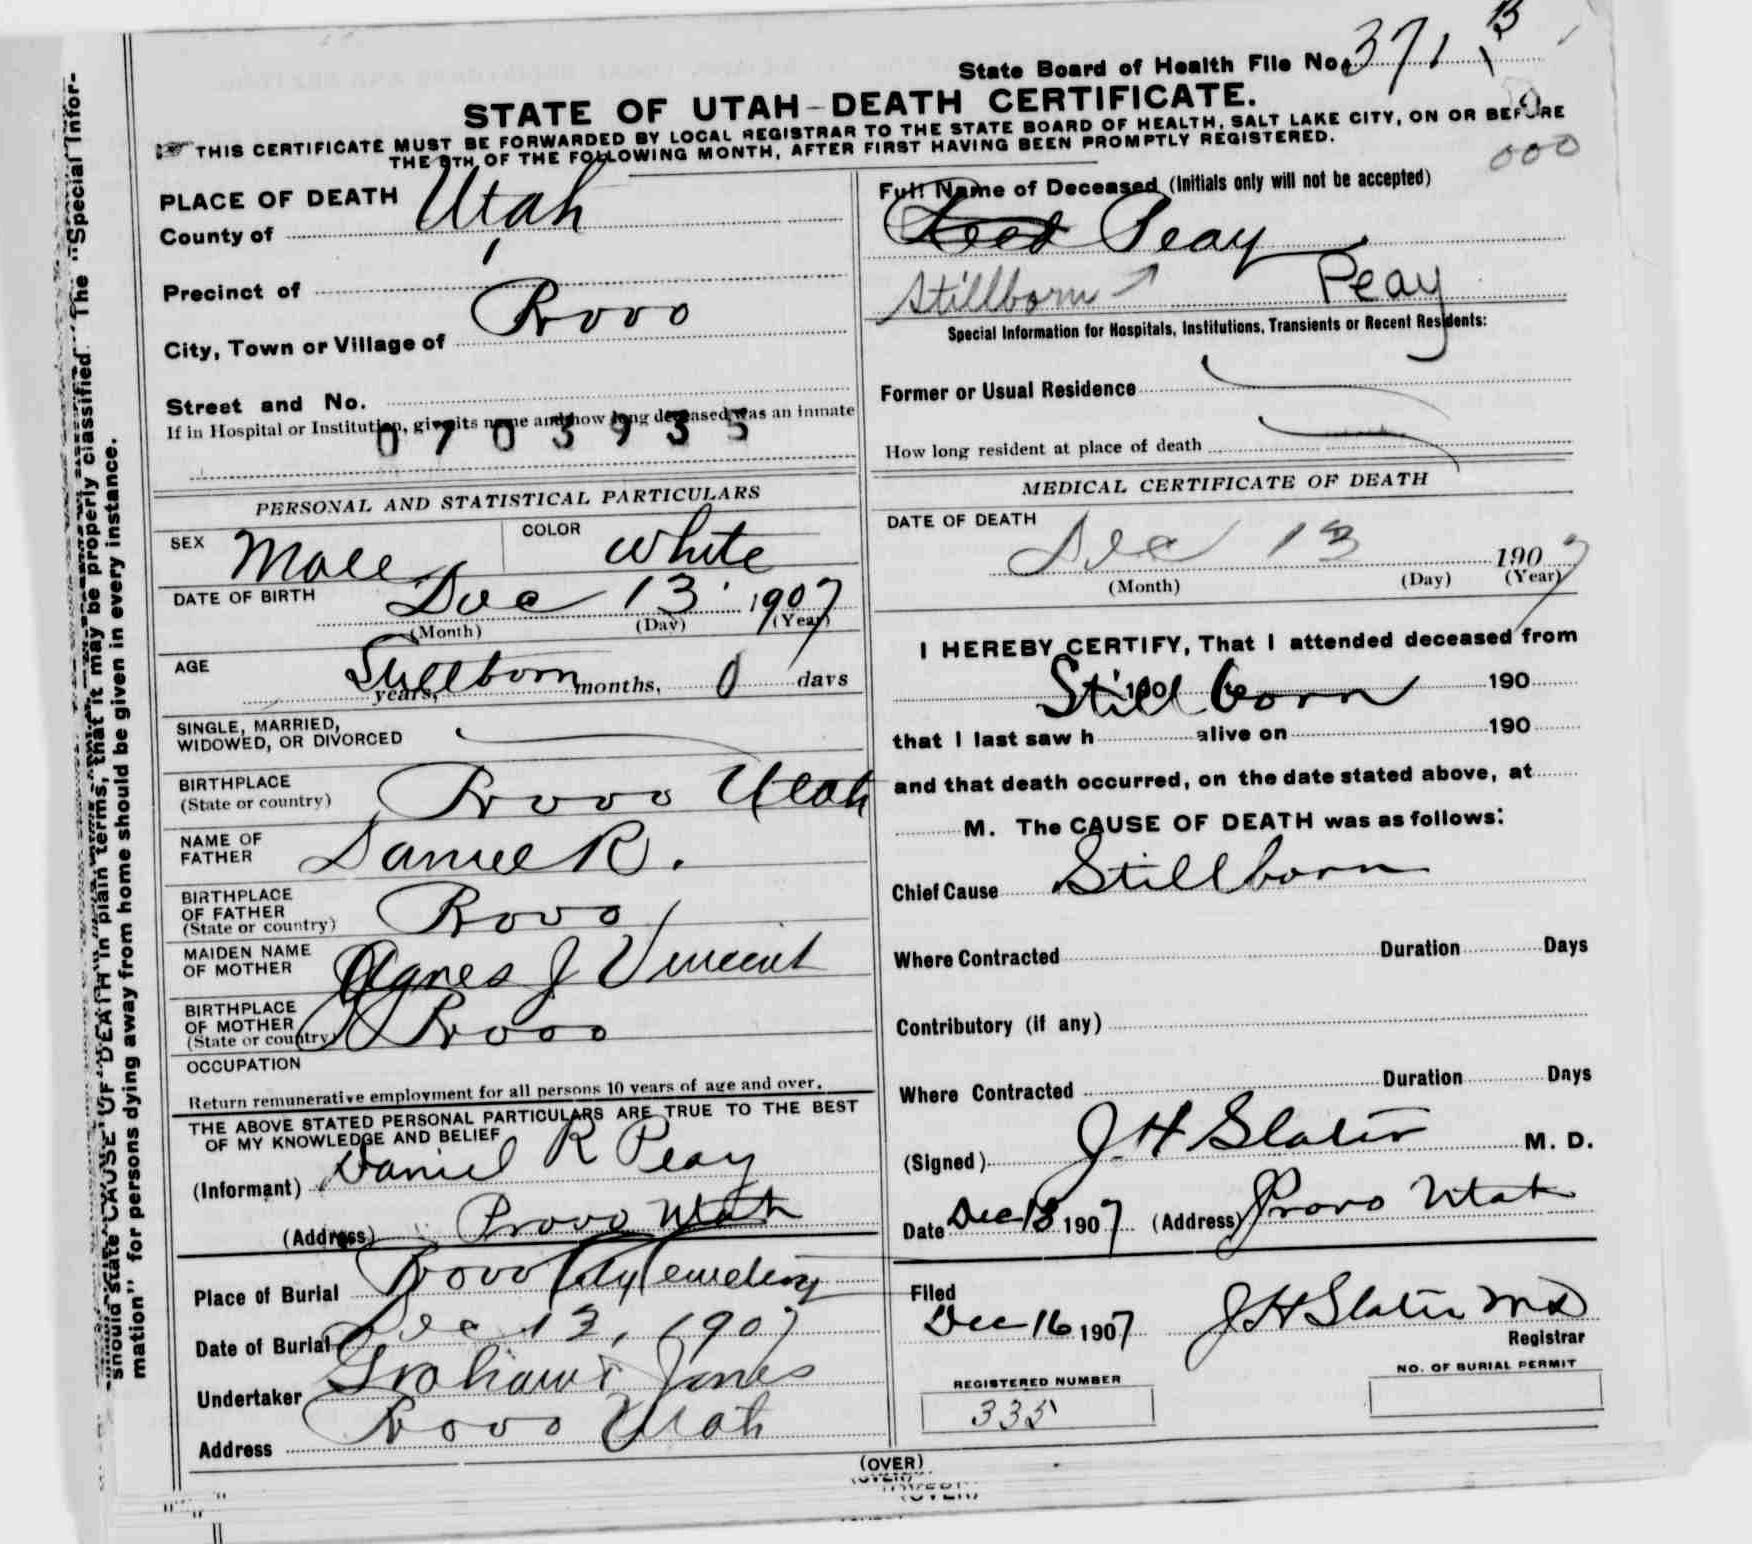 State Board of Health File No. 371 B
STATE OF UTAH—DEATH CERTIFICATE.
THIS CERTIFICATE MUST BE FORWARDED BY LOCAL REGISTRAR TO THE STATE BOARD OF HEALTH, SALT LAKE CITY, ON OR BEFORE
THE 5TH OF THE FOLLOWING MONTH, AFTER FIRST HAVING BEEN PROMPTLY REGISTERED.
000
PLACE OF DEATH
County of Utah
Precinct of
City, Town or Village of Provo
Street and No.
If in Hospital or Institution, give its name and how long deceased was an inmate
0703935
PERSONAL AND STATISTICAL PARTICULARS
SEX Male COLOR White
DATE OF BIRTH Dec 13 1907
(Month) (Day) (Year)
AGE Stillborn years, months, 0 days
SINGLE, MARRIED,
WIDOWED, OR DIVORCED
BIRTHPLACE
(State or country) Provo Utah
NAME OF
FATHER Daniel R.
BIRTHPLACE
OF FATHER
(State or country) Provo
MAIDEN NAME
OF MOTHER Agnes J Vincent
BIRTHPLACE
OF MOTHER
(State or country) Provo
OCCUPATION
Return remunerative employment for all persons 10 years of age and over.
THE ABOVE STATED PERSONAL PARTICULARS ARE TRUE TO THE BEST
OF MY KNOWLEDGE AND BELIEF
(Informant) Daniel R Peay
(Address) Provo Utah
Place of Burial Provo City Cemetery
Date of Burial Dec 13, 1907
Undertaker Graham & Jones
Address Provo Utah
Full Name of Deceased (Initials only will not be accepted)
Peay
Stillborn Peay
Special Information for Hospitals, Institutions, Transients or Recent Residents:
Former or Usual Residence
How long resident at place of death
MEDICAL CERTIFICATE OF DEATH
DATE OF DEATH
Dec 13 1907
(Month) (Day) (Year)
I HEREBY CERTIFY, That I attended deceased from
Still born 190
that I last saw h alive on 190
and that death occurred, on the date stated above, at
M. The CAUSE OF DEATH was as follows:
Chief Cause Stillborn
Where Contracted Duration Days
Contributory (if any)
Where Contracted Duration Days
(Signed) J. H Slater M. D.
Date Dec 13 1907 (Address) Provo Utah
Filed
Dec 16 1907 J H Slater MD
Registrar
REGISTERED NUMBER
335
NO. OF BURIAL PERMIT
(OVER)
should state CAUSE OF DEATH in plain terms, that it may be properly classified. The "Special Infor-
mation" for persons dying away from home should be given in every instance.